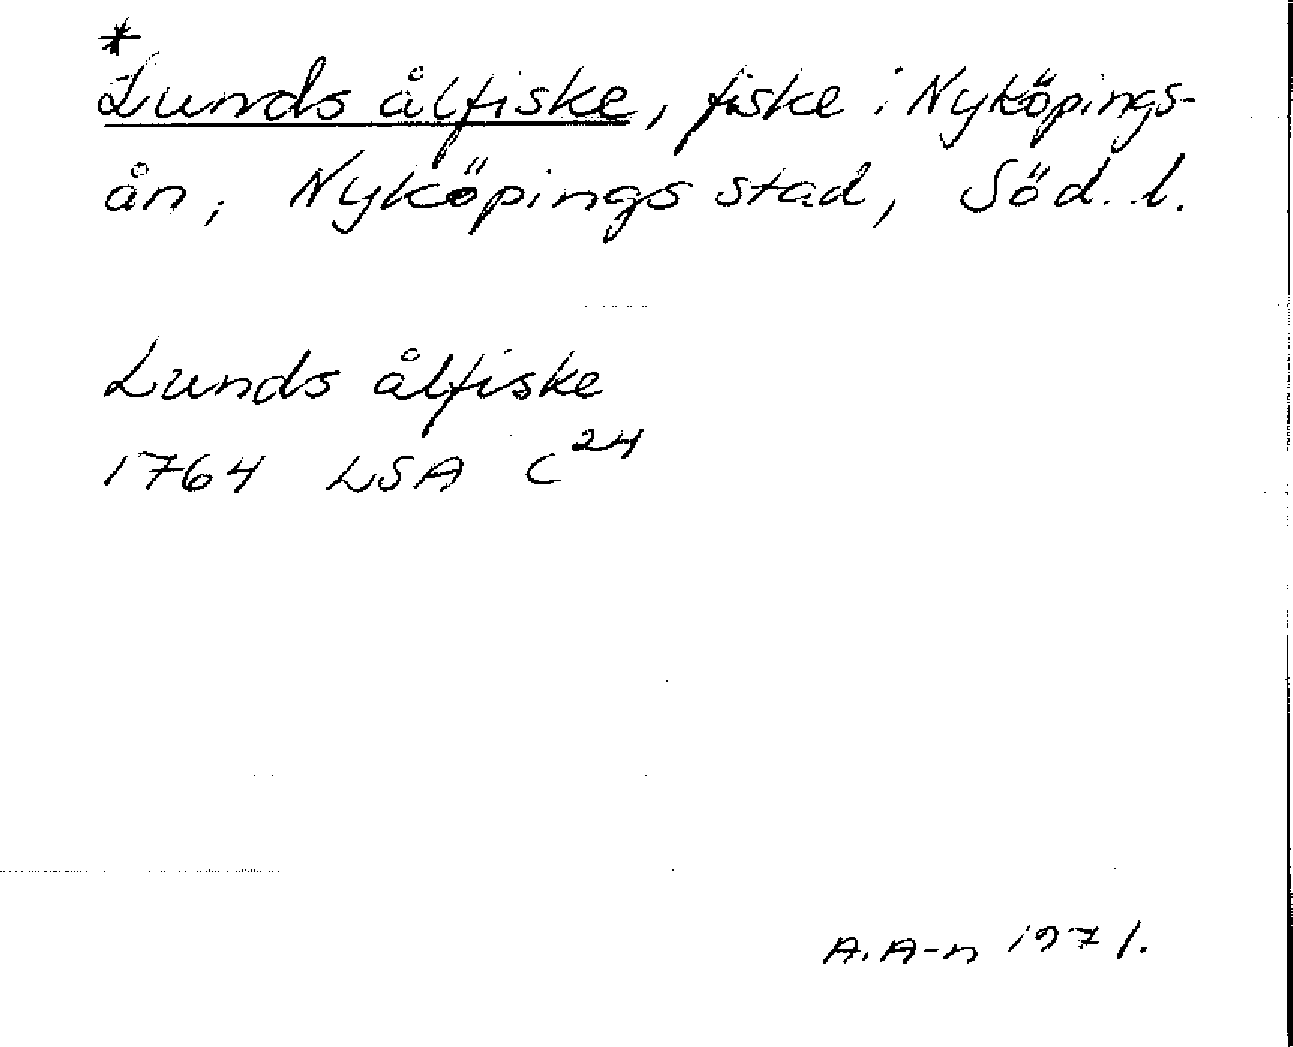 *
Lunds ålfiske, fiske i Nyköpings-
ån, Nyköpings stad, Söd. l.
Lunds ålfiske
1764 LSA C24
A. A-n 1971.